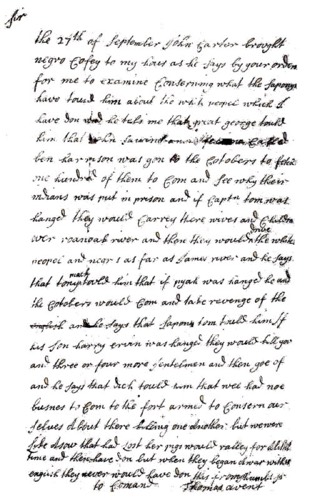 Sir
the 27th of September John Carter brought
negro Cofey to my hous as he Says by your orders
for me to examine Conserning what the Sapons
have tould him about the white peopel which I
have don and he tels me that great george tould
him that John and
ben harrison was gon to the Totobers to fetch
five hundred of them to Com and See why their
indians was put in prison and if Captn tom was
hanged they would Carrey there wives and Children
over roanoak river and then they would drive the white
peopel and near as far as James river and he Says
that tony mack tould him that if pyah was hanged he and
the Totobers would Com and take revenge of the
english and he Says that Sapon tom tould him If
his Son harry ervan was hanged they would kill you
and three or four more Jentelmen and then goe of
and he Says that dick tould him that wee had noe
busnes to Com to the fort armed to Consern our
Selves about there killing one another but we were
like a Sow that had lost her pigs would ralley for a little
time and then have don but when they began a war with the
english they never would have don this from
to Comand Thomas avent